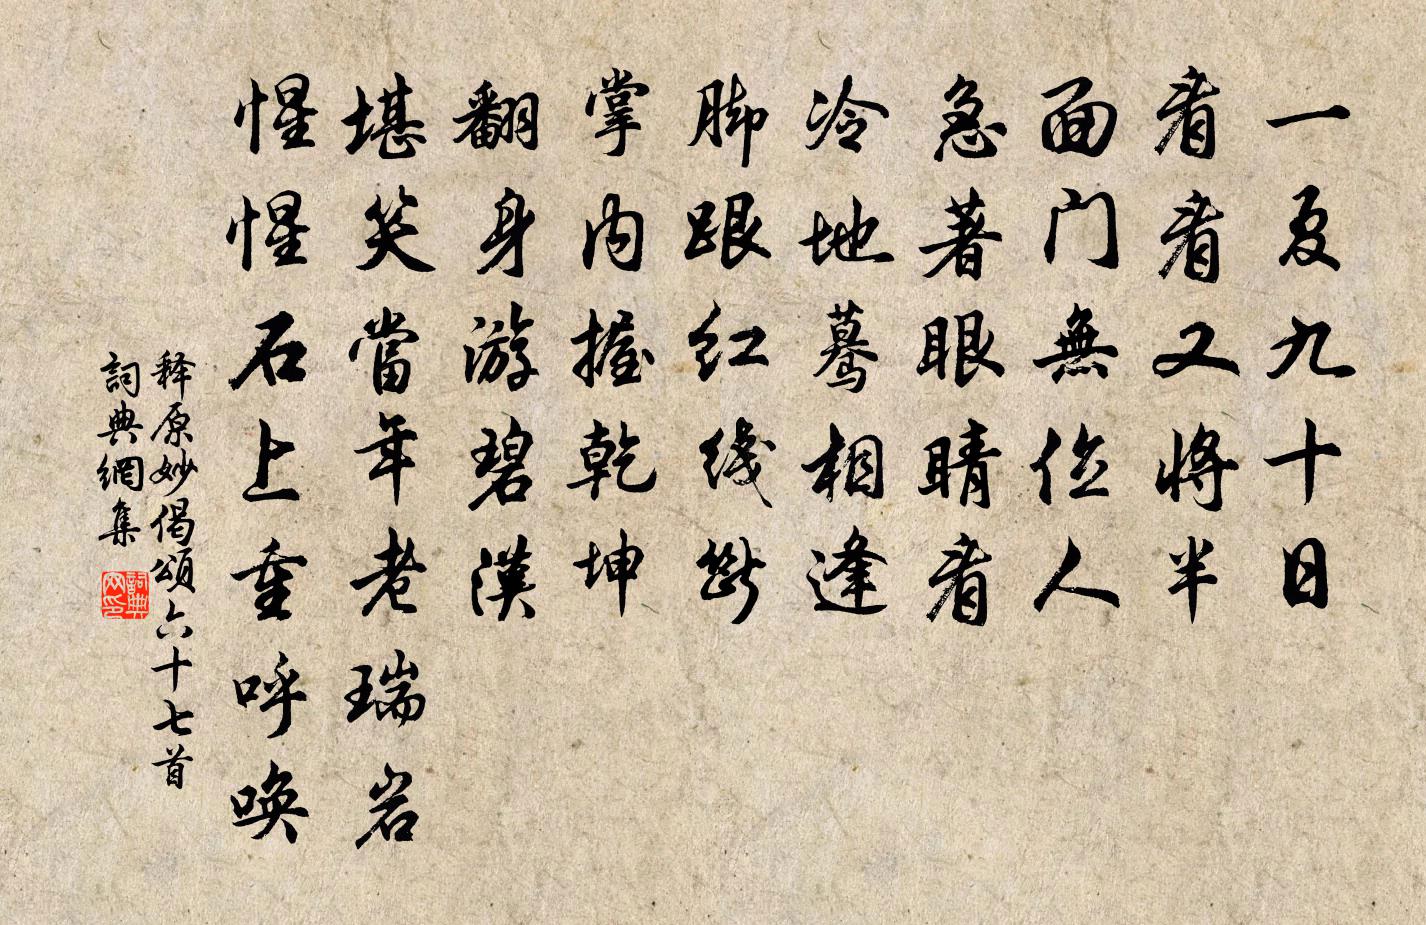 一夏九十日
看看又将半
面门無位人
急著眼睛看
冷地驀相逢
脚跟红线斷
掌内握乾坤
翻身游碧漢
堪笑當年老瑞岩
惺惺石上重呼唤
释原妙偈頌六十七首
詞典網集
詞典网印